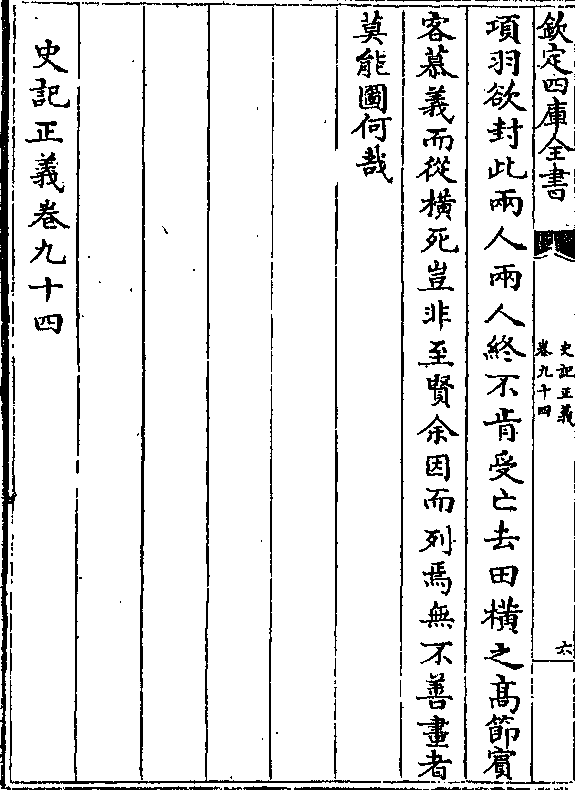 欽定四庫全書
史記正義
卷九十四
六
項羽欲封此兩人兩人終不肯受亡去田橫之高節賓
客慕義而從橫死豈非至賢余因而列焉無不善畫者
莫能圖何哉
史記正義卷九十四